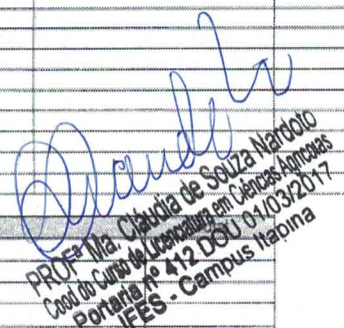 PROFª Ma. Cláudia de Souza Nardoto
Coord. do Curso de Licenciatura em Ciências Agrícolas
Portaria nº 412 DOU 01/03/2017
IFES - Campus Itapina